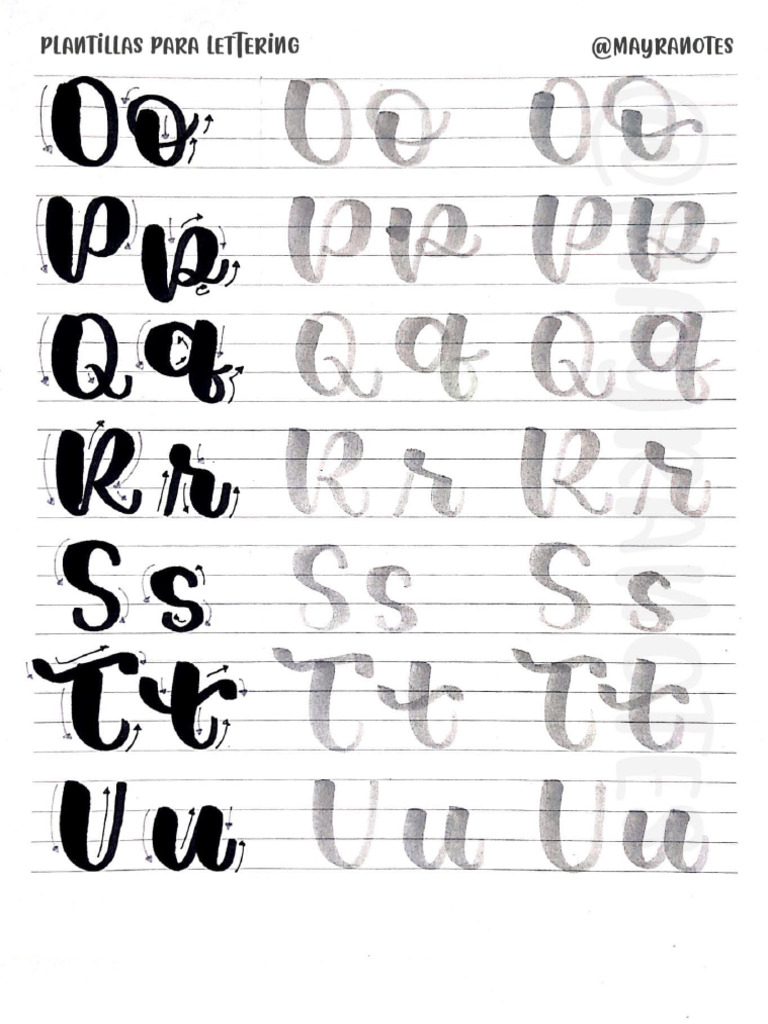 PLANTILLAS PARA LETTERING @MAYRANOTES
O o O o O o
P p P p P p
Q q Q q Q q
R r R r R r
S s S s S s
T t T t T t
U u U u U u
@MAYRANOTES